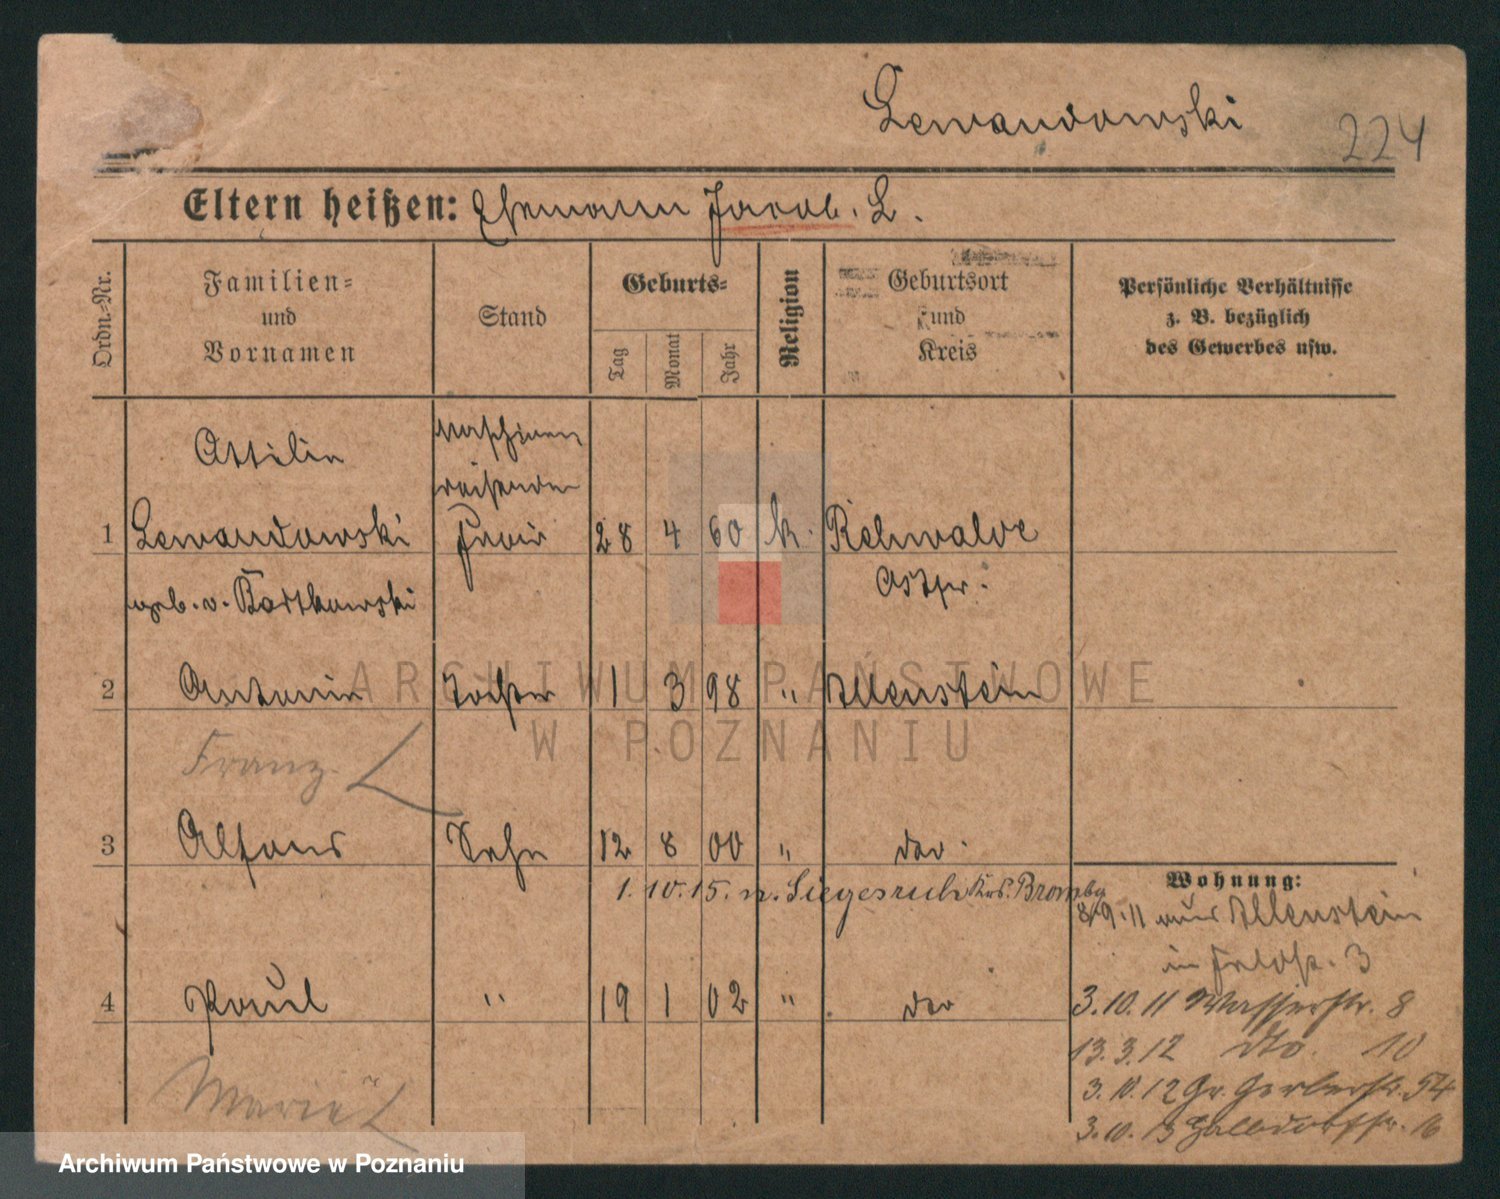 Lewandowski
224
Eltern heißen: Ehemann Jacob. L.
Ordn.-Nr.
Familien-
und
Vornamen
Stand
Geburts-
Tag
Monat
Jahr
Religion
Geburtsort
und
Kreis
Persönliche Verhältnisse
z. B. bezüglich
des Gewerbes usw.
Ottilie Maschinen
reisenden
1 Lewandowski Frau 28 4 60 k. Rehwalde
geb. v. Bartkowski Ostpr.
2 Antonie Tochter 1 3 98 " Allenstein
Franz L
3 Alfons Sohn 12 8 00 " do.
1.10.15. n. Siegesruh Krs. Brombg
Wohnung:
8/9.11 aus Allenstein
in Feldstr. 3
4 Paul " 19 1 02 " do
3.10.11 Wasserstr. 8
13.3.12 dto. 10
Marie L
3.10.12 Gr. Gerberstr. 54
3.10.13 16
ARCHIWUM PAŃSTWOWE
W POZNANIU
Archiwum Państwowe w Poznaniu